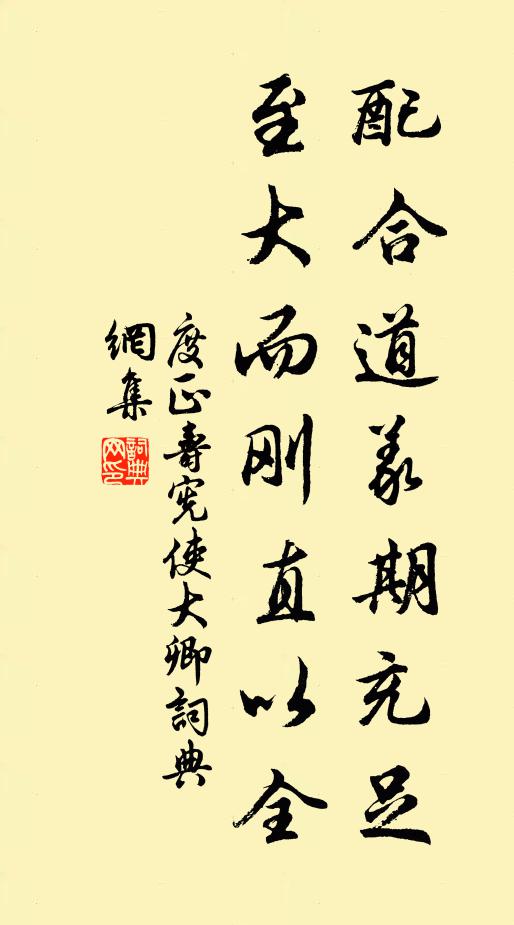 配合道义期充足
至大而刚直以全
度正壽憲使大卿詞典
網集
詞典網印